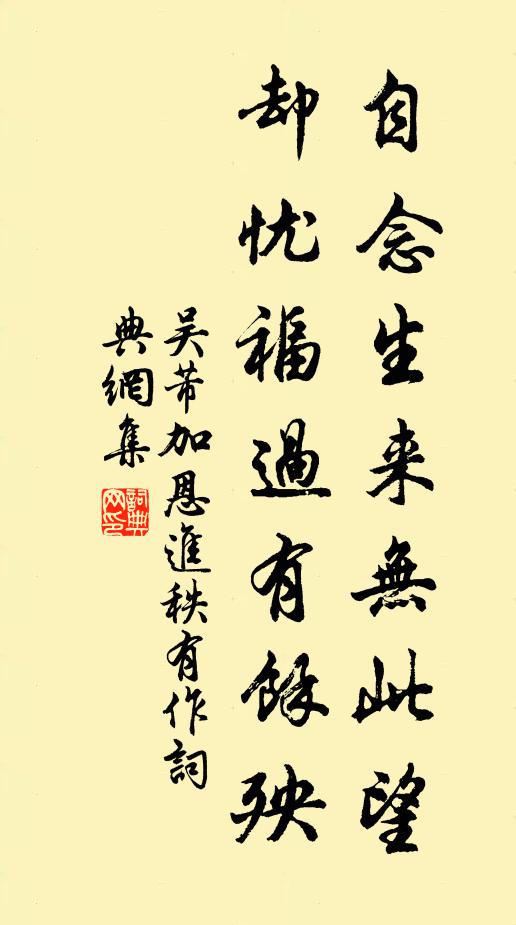 自念生来無此望
却忧福過有餘殃
吴芾加恩進秩有作詞
典網集
詞典网印